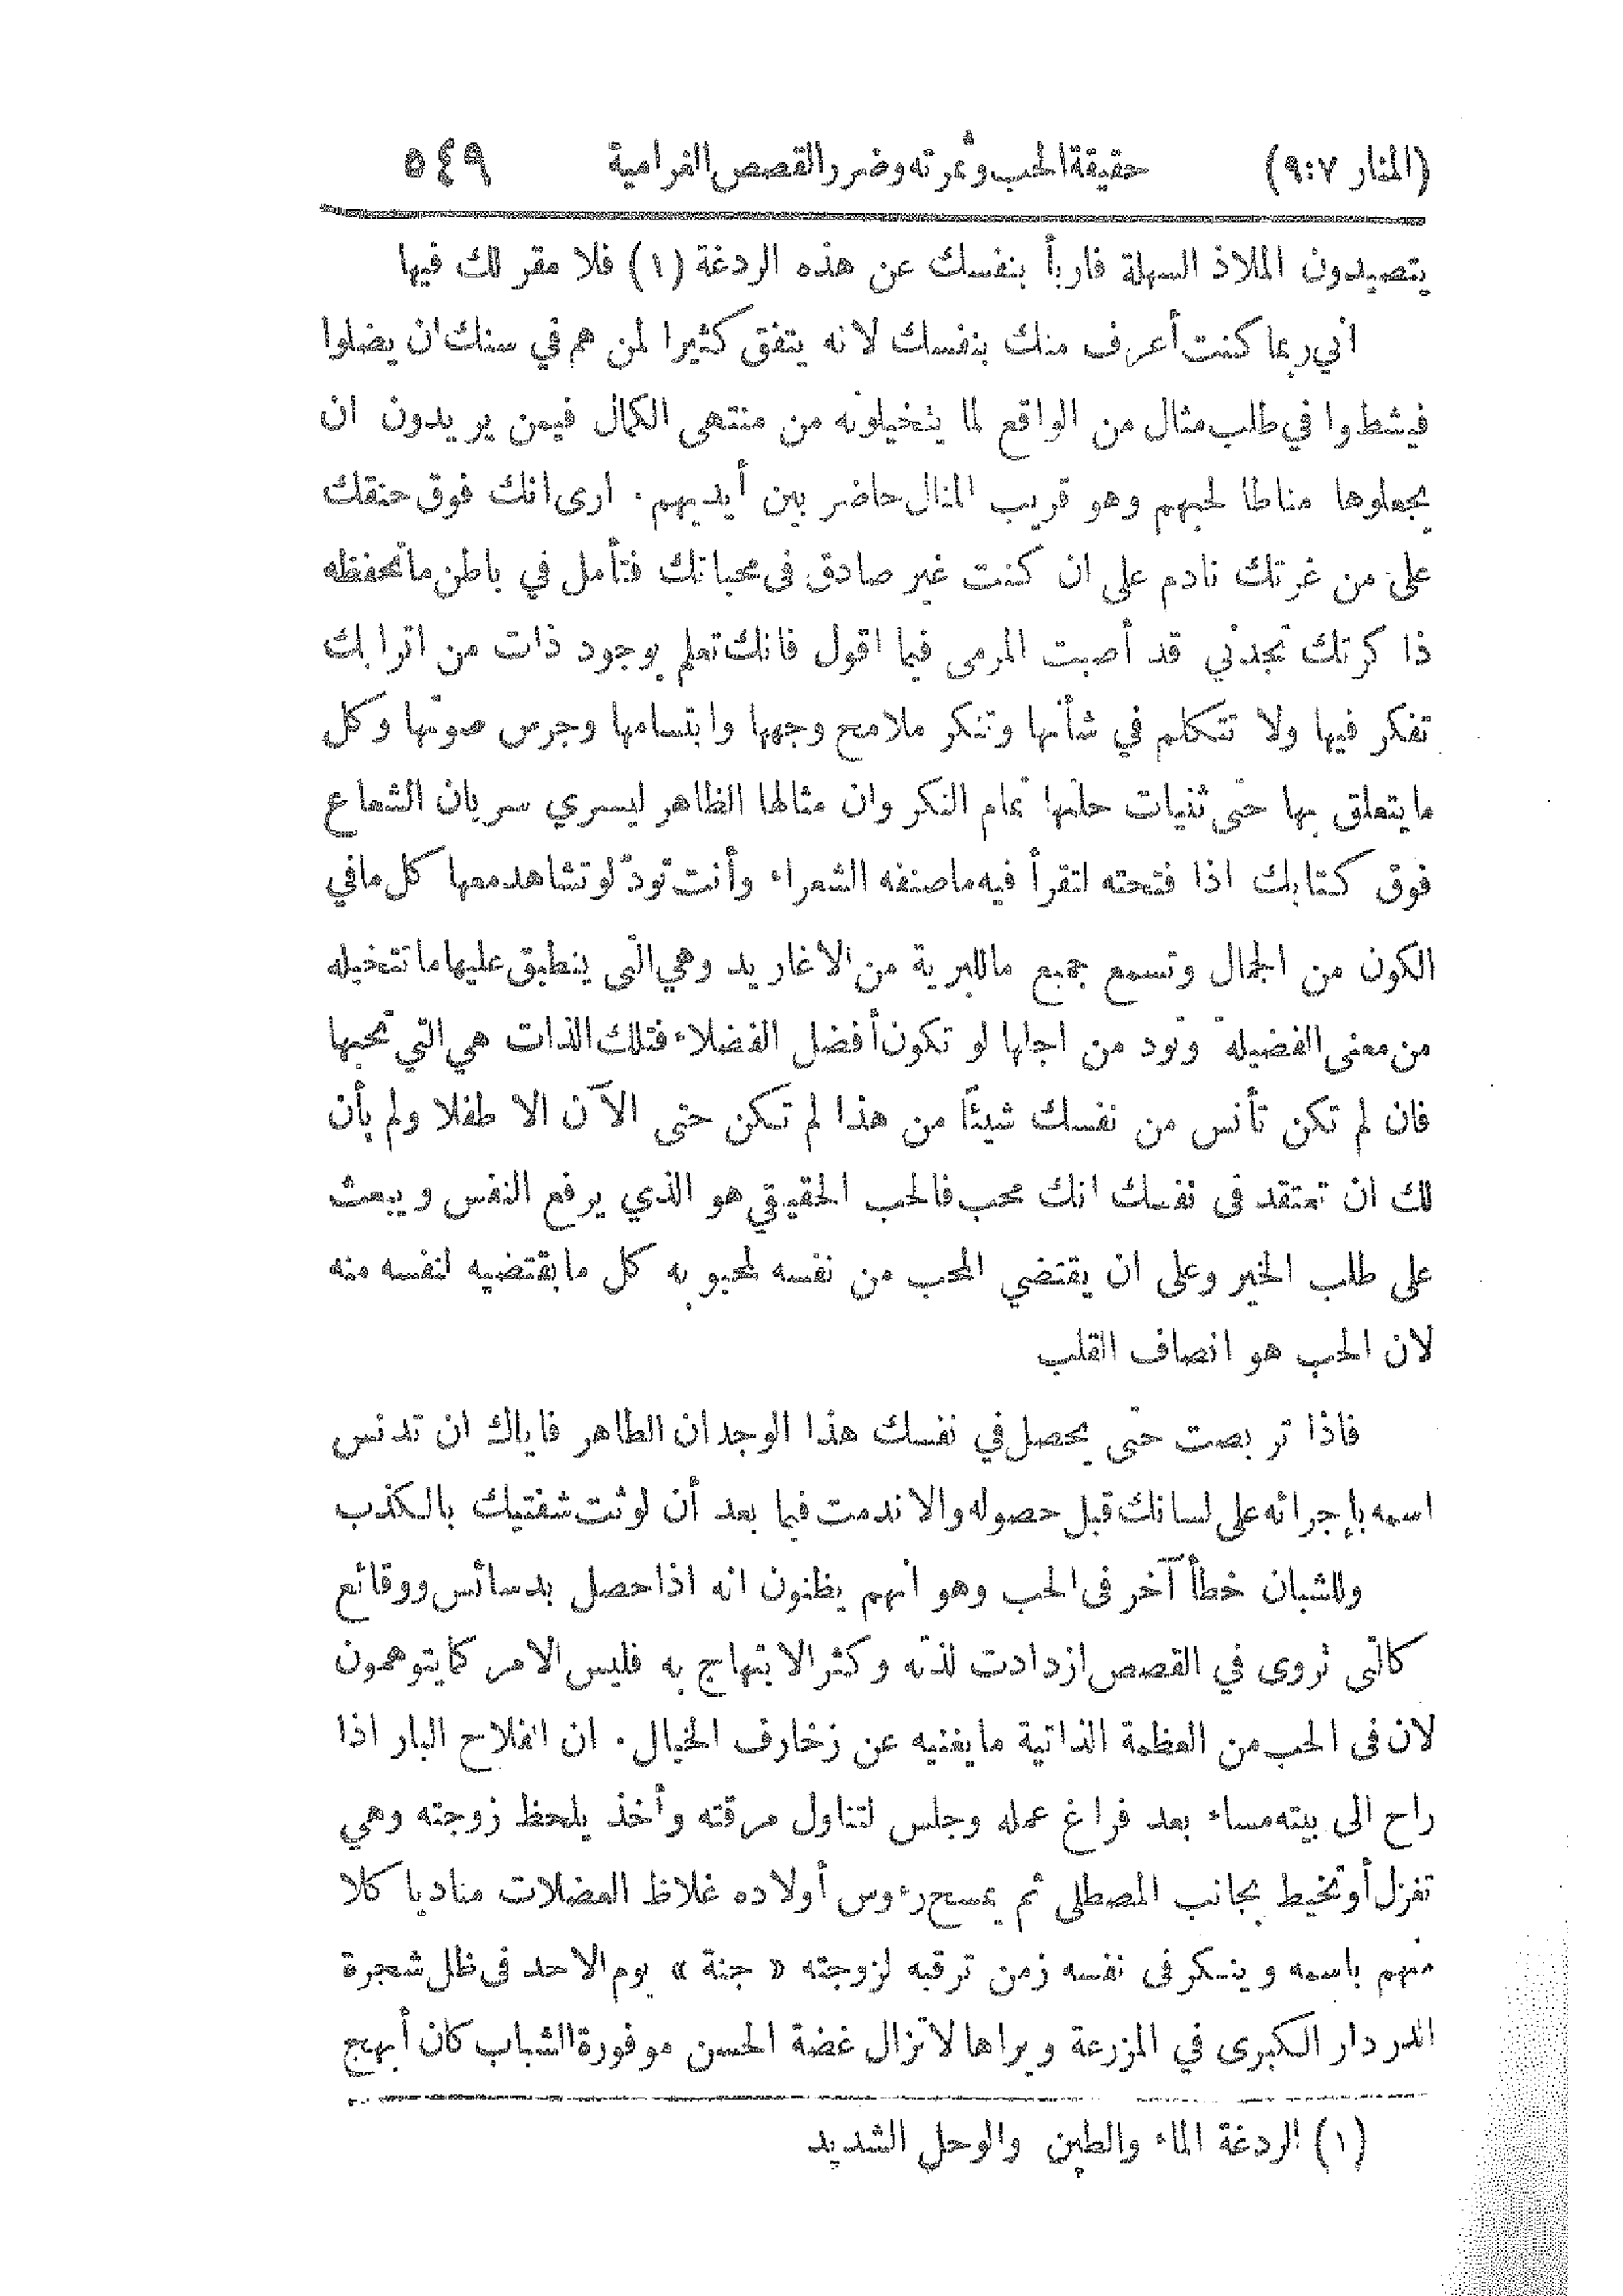 (المنار ٩:٧) حقيقة الحب وثمرته وضرر القصص الغرامية ٥٤٩
يتصيدون الملاذ السهلة فاربأ بنفسك عن هذه الردغة (١) فلا مقر لك فيها
اني ربما كنت أعرف منك بنفسك لانه يتفق كثيرا لمن هم في سنك ان يضلوا
فيشطوا في طلب مثال من الواقع لما يتخيلونه من منتهى الكمال فيمن يريدون ان
يجعلوها مناطا لحبهم وهو قريب المنال حاضر بين أيديهم. ارى انك فوق حنقك
على من غرتك نادم على ان كنت غير صادق في محباتك فتأمل في باطن ما تحفظه
ذا كرتك تجدني قد أصبت المرمى فيما اقول فانك تعلم بوجود ذات من اترابك
تفكر فيها ولا تتكلم في شأنها وتنكر ملامح وجهها وابتسامها وجرس صوتها وكل
ما يتعلق بها حتى ثنيات حلتها تمام النكر وان مثالها الظاهر ليسري سريان الشعاع
فوق كتابك اذا فتحته لتقرأ فيه ما صنفه الشعراء وأنت تودّ لو تشاهد معها كل ما في
الكون من الجمال وتسمع جميع ما للبرية من الاغاريد وهي التى ينطبق عليها ما تتخيله
من معنى الفضيلة وتود من اجلها لو تكون أفضل الفضلاء فتلك الذات هي التي تحبها
فان لم تكن تأنس من نفسك شيئًا من هذا لم تكن حتى الآن الا طفلا ولم يأن
لك ان تعتقد فى نفسك انك محب فالحب الحقيقي هو الذي يرفع النفس ويبعث
على طلب الخير وعلى ان يقتضي المحب من نفسه لمحبوبه كل ما يقتضيه لنفسه منه
لان الحب هو انصاف القلب
فاذا تربصت حتى يحصل في نفسك هذا الوجدان الطاهر فاياك ان تدنس
اسمه بإجرائه على لسانك قبل حصوله والا ندمت فيما بعد أن لوثت شفتيك بالكذب
وللشبان خطأ آخر فى الحب وهو انهم يظنون انه اذا حصل بدسائس ووقائع
كالتى تروى في القصص ازدادت لذته وكثر الابتهاج به فليس الامر كما يتوهمون
لان فى الحب من العظمة الذاتية ما يغنيه عن زخارف الخيال. ان الفلاح البار اذا
راح الى بيته مساء بعد فراغ عمله وجلس لتناول مرقته وأخذ يلحظ زوجته وهي
تغزل أو تخيط بجانب المصطلى ثم يمسح رءوس أولاده غلاظ العضلات مناديا كلا
منهم باسمه ويذكر فى نفسه زمن ترقبه لزوجته « جنة » يوم الاحد فى ظل شجرة
الدردار الكبرى في المزرعة ويراها لا تزال غضة الحسن موفورة الشباب كان أبهج
(١) الردغة الماء والطين والوحل الشديد